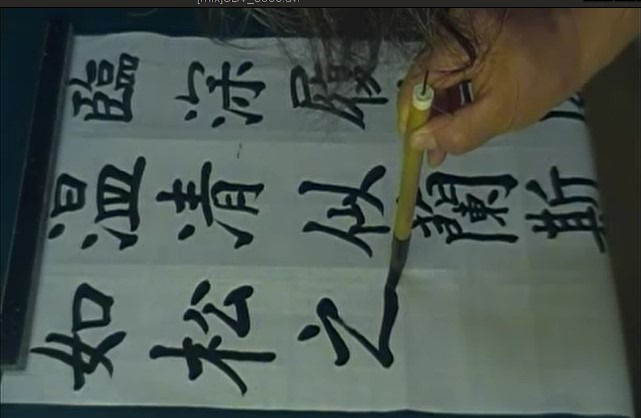 臨深履
温清似蘭斯
如松之